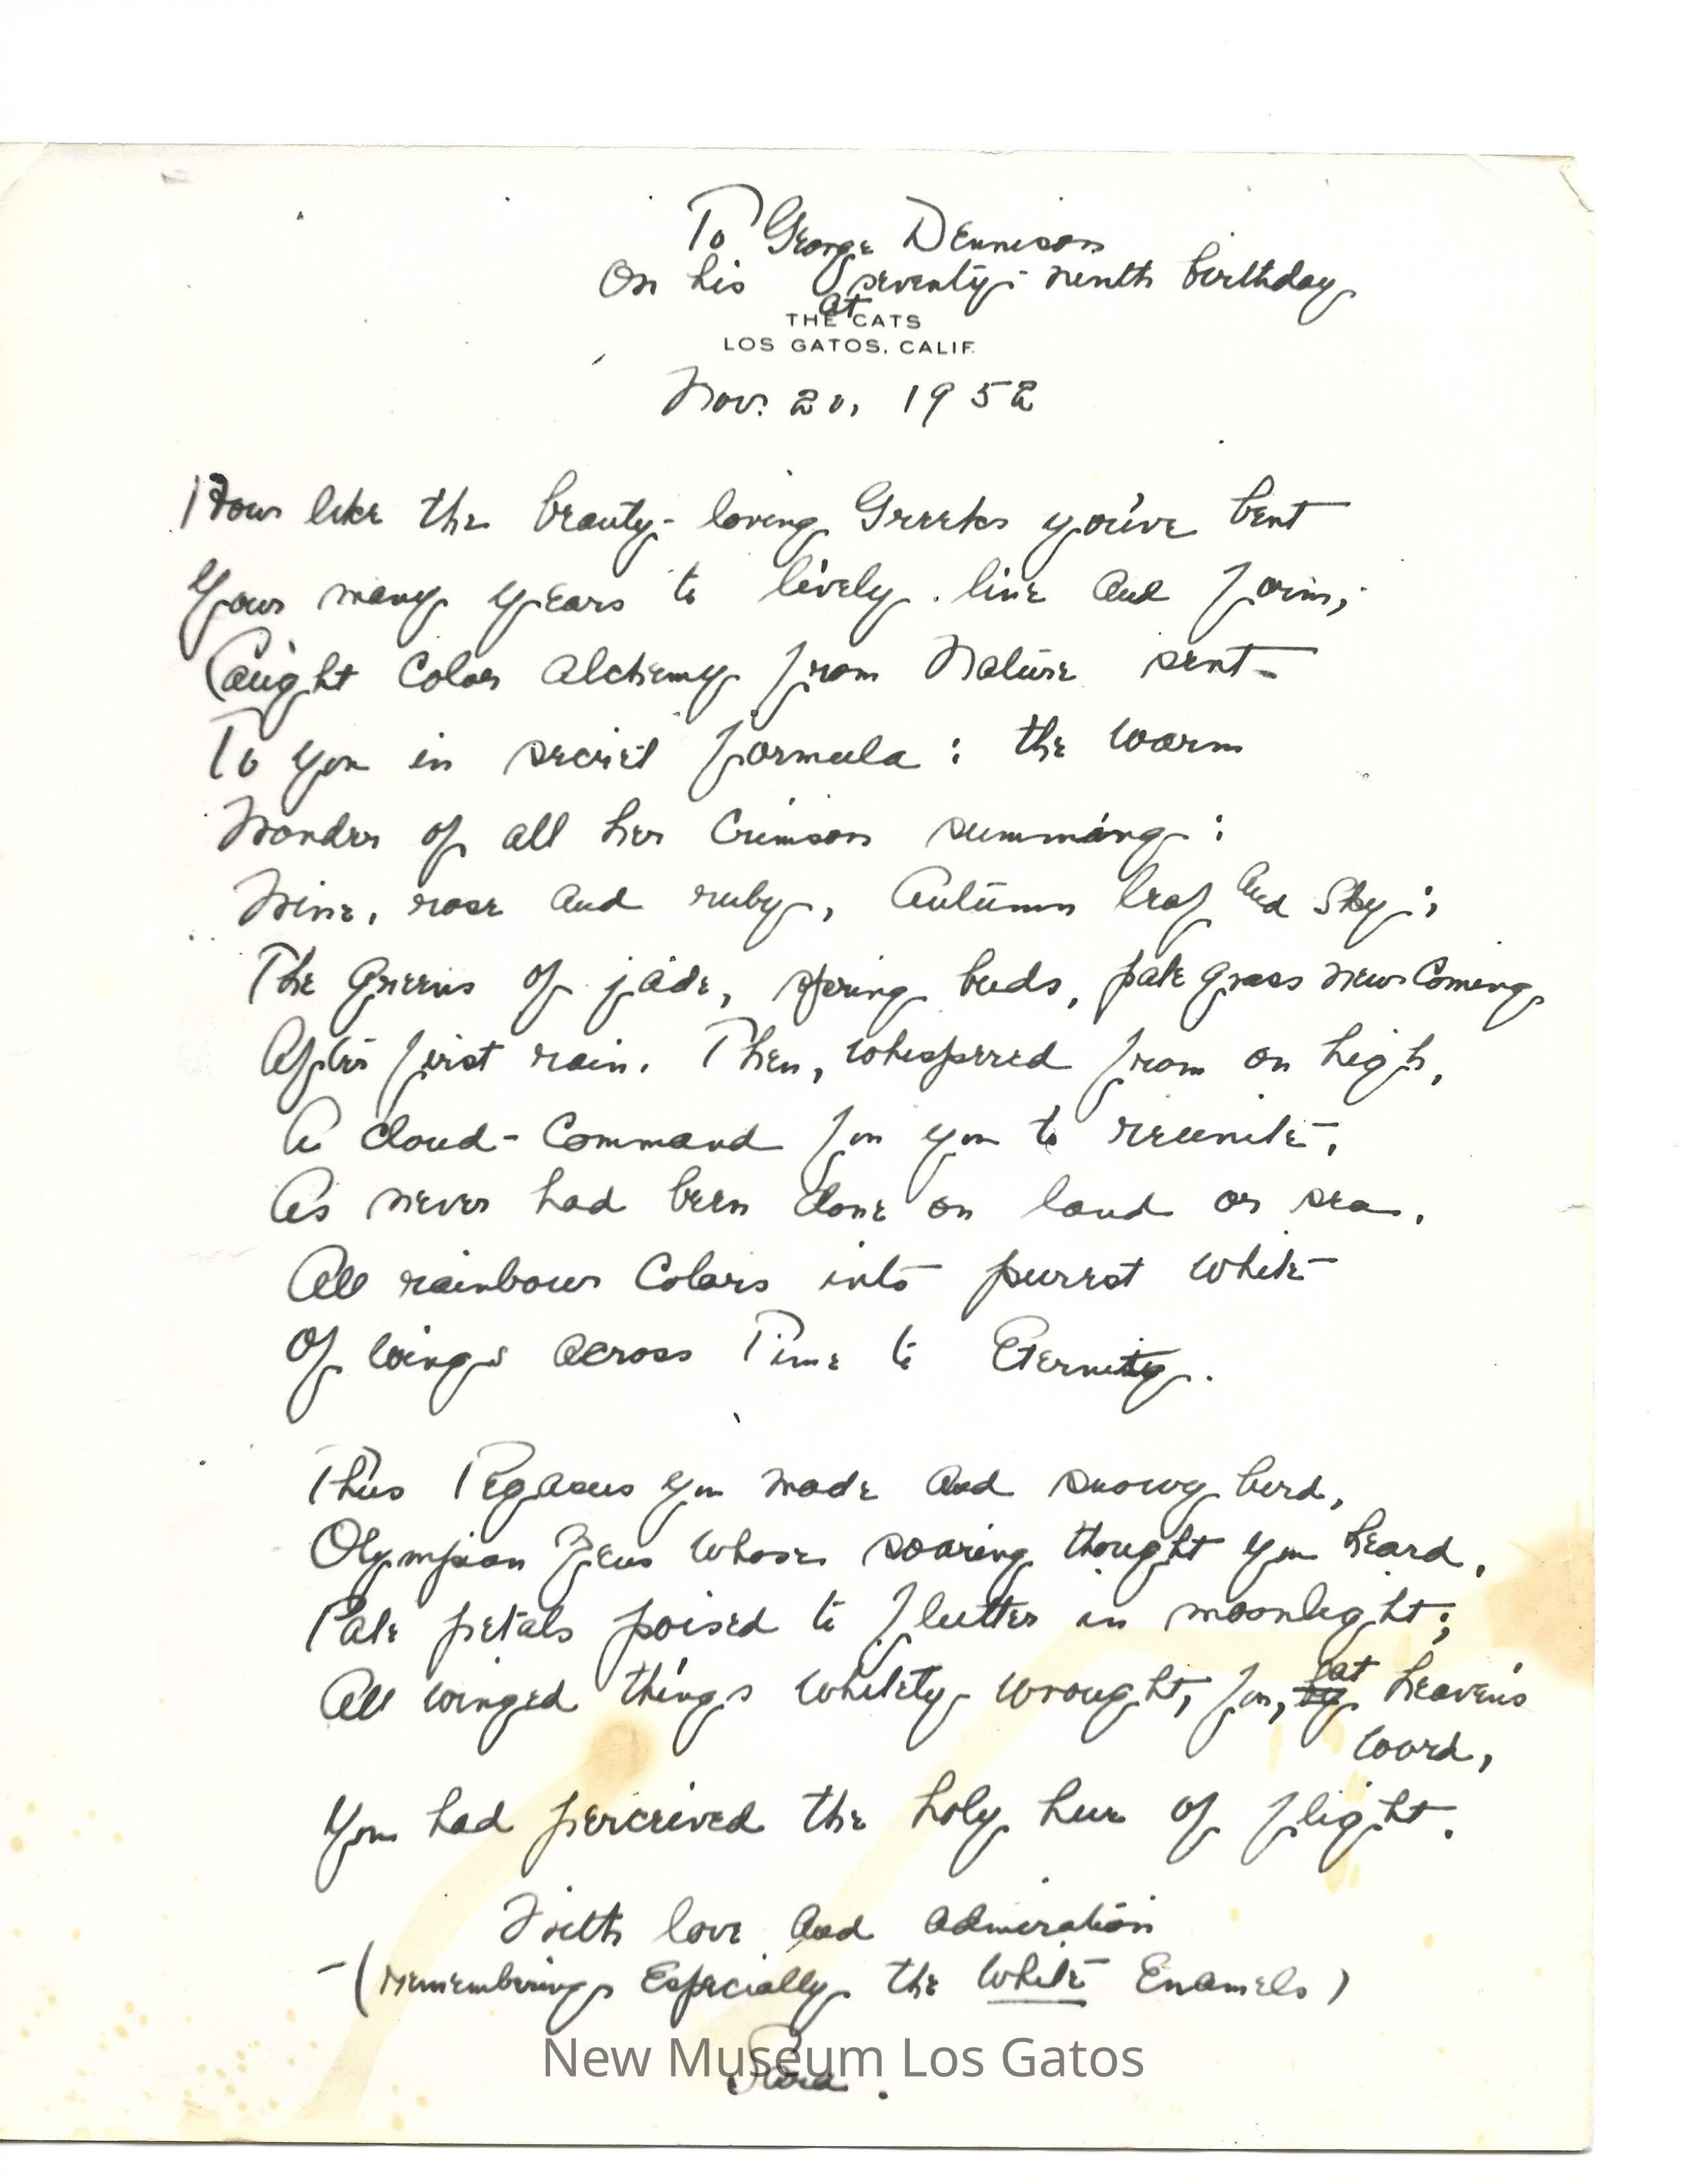 To George Dennison
On his seventy-ninth birthday
at
THE CATS
LOS GATOS, CALIF.
Nov. 20, 1952
How like the beauty-loving Greeks you've bent
Your many years to lively line and form;
Caught Color Alchemy from Nature sent
To you in secret formula: the warm
Wonder of all her Crimson summing:
Wine, rose and ruby, Autumn leaf and Sky;
The Greens of jade, spring buds, pale grass new-coming
After first rain. Then, whispered from on high,
A cloud-Command for you to reunite,
As never had been done on land or sea,
All rainbow Colors into purest white
Of wings across Time to Eternity.
Thus Pegasus you made and snowy bird,
Olympian Zeus whose soaring thought you heard,
Pale petals poised to flutter in moonlight;
All winged things whitely wrought, for, at heaven's
word,
You had perceived the holy hue of flight.
With love and admiration
-(remembering Especially the White Enamels)
Sara.
New Museum Los Gatos